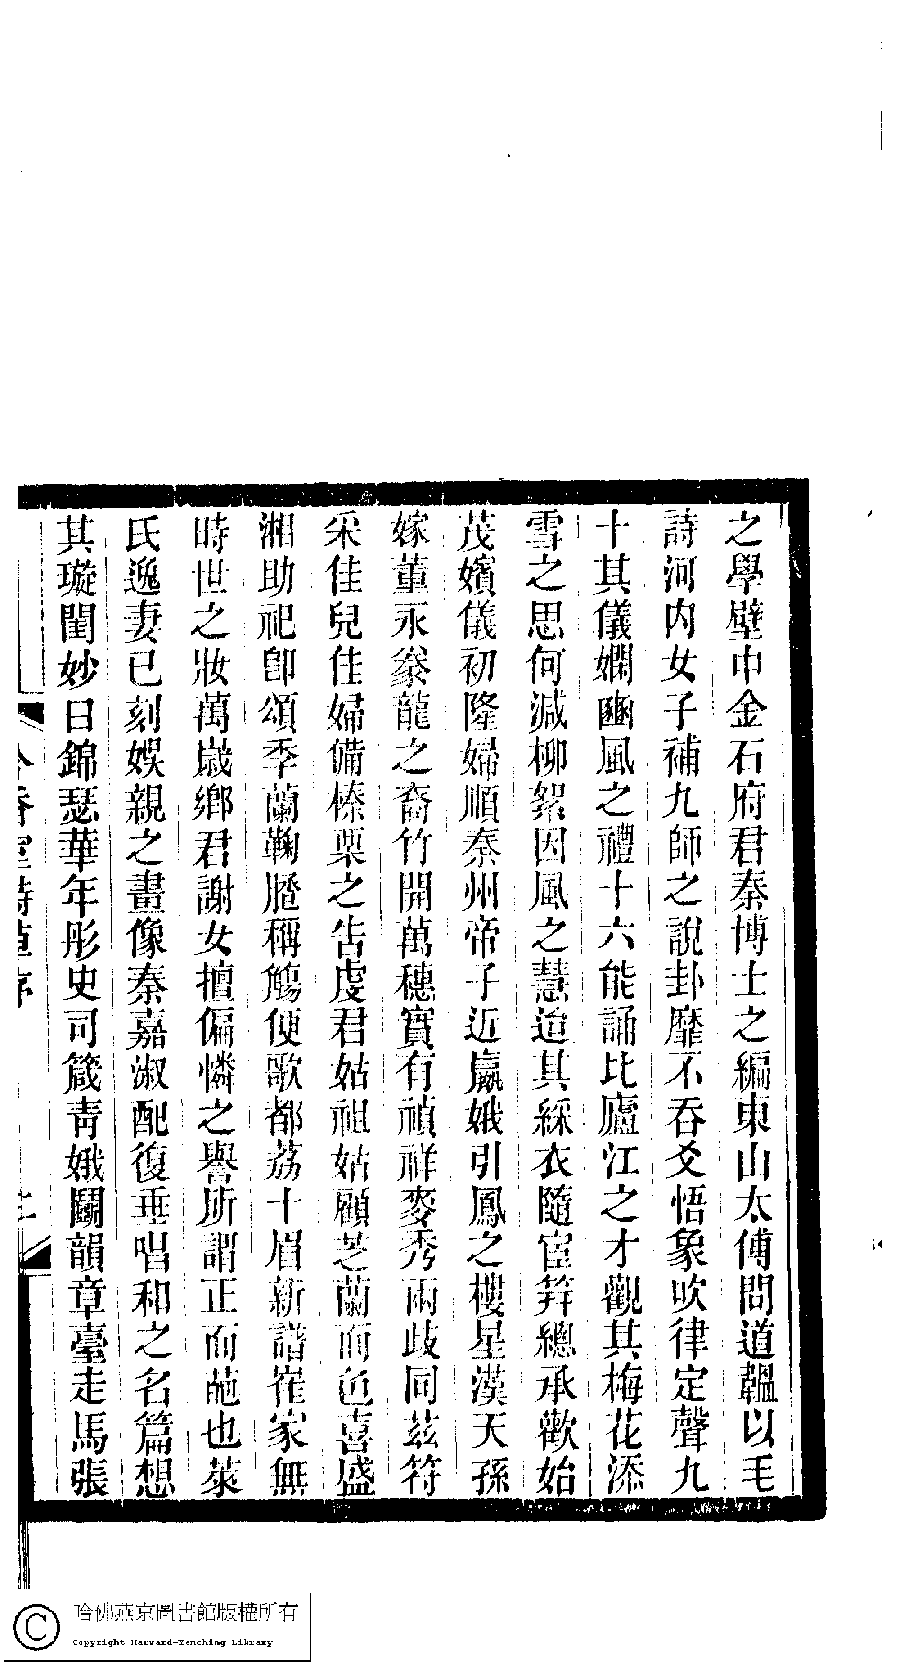 之學壁中金石府君秦博士之編東山太傅問道韞以毛
詩河內女子補九師之說卦靡不吞爻悟象吹律定聲九
十其儀嫻豳風之禮十六能誦比廬江之才觀其梅花添
雪之思何減柳絮因風之慧迨其綵衣隨宦笄總承歡始
茂嬪儀初隆婦順秦州帝子近嬴娥引鳳之樓星漢天孫
嫁董永豢龍之裔竹開萬穗實有禎祥麥秀兩歧同茲符
采佳兒佳婦備榛栗之告虔君姑祖姑顧芝蘭而色喜盛
湘助祀卽頌季蘭鞠䐶稱觴便歌都荔十眉新譜崔家無
時世之妝萬歲鄉君謝女擅偏憐之譽所謂正而葩也萊
氏逸妻已刻娛親之畫像秦嘉淑配復垂唱和之名篇想
其璇閨妙日錦瑟華年彤史司箴靑娥鬭韻章臺走馬張
香室詩草序
哈佛燕京圖書館版權所有
Copyright Harvard-Yenching Library